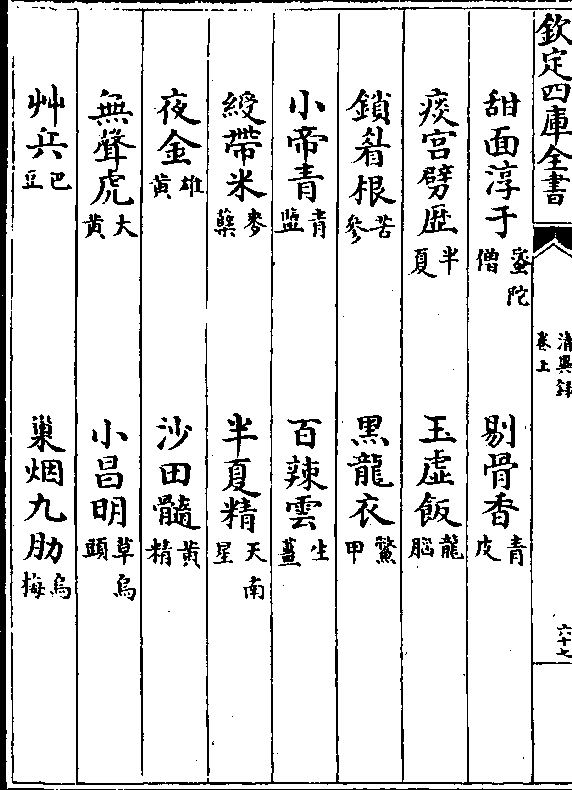 欽定四庫全書
清異録
卷上
六十七
甜面淳于 蜜陀僧 剔骨香 青皮
痰宫劈歴 半夏 玉虛飯 龍腦
鎖眉根 苦參 黒龍衣 鱉甲
小帝青 青鹽 百辣雲 生薑
綬帶米 麥蘖 半夏精 天南星
夜金 雄黄 沙田髓 黄精
無聲虎 大黄 小昌明 草烏頭
艸兵 巴豆 巢烟九肋 烏梅